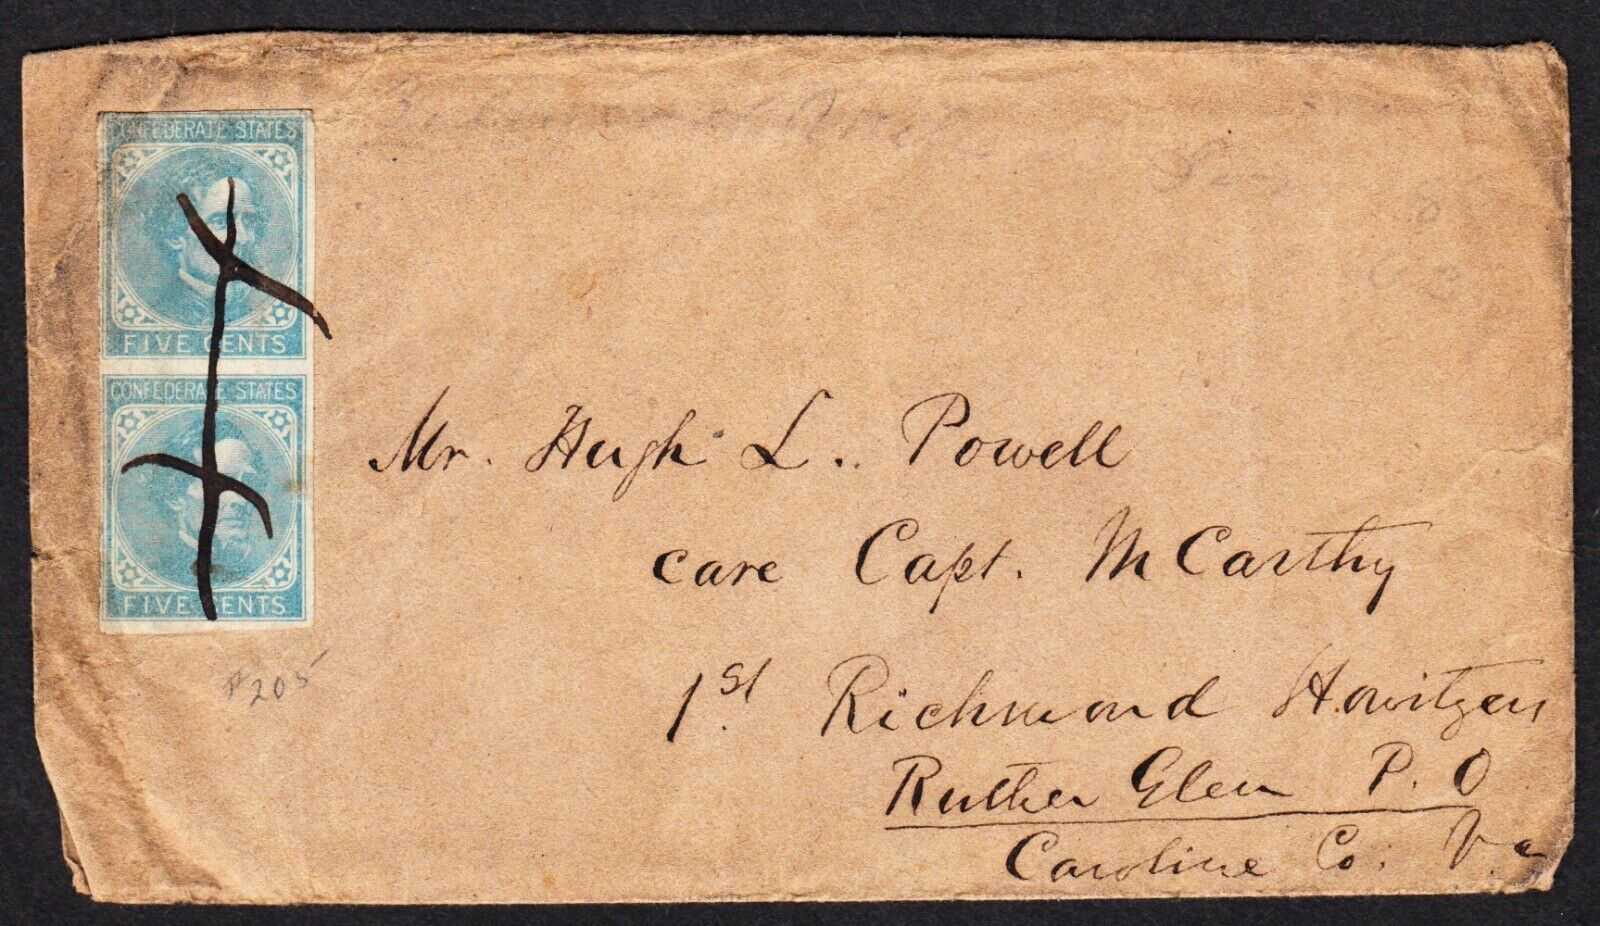 CONFEDERATE STATES
FIVE CENTS
CONFEDERATE STATES
FIVE CENTS
#205
Mr. Hugh L.. Powell
care Capt. McCarthy
1st. Richmond Howitzers
Ruther Glen P. O
Caroline Co. Va